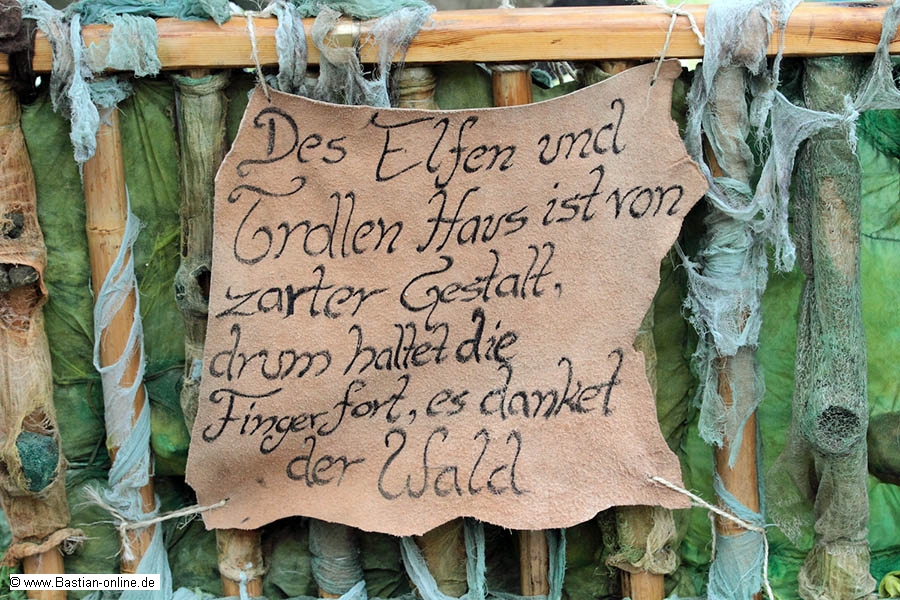 Des Elfen und
Trollen Haus ist von
zarter Gestalt,
drum haltet die
Finger fort, es danket
der Wald
© www.Bastian-online.de